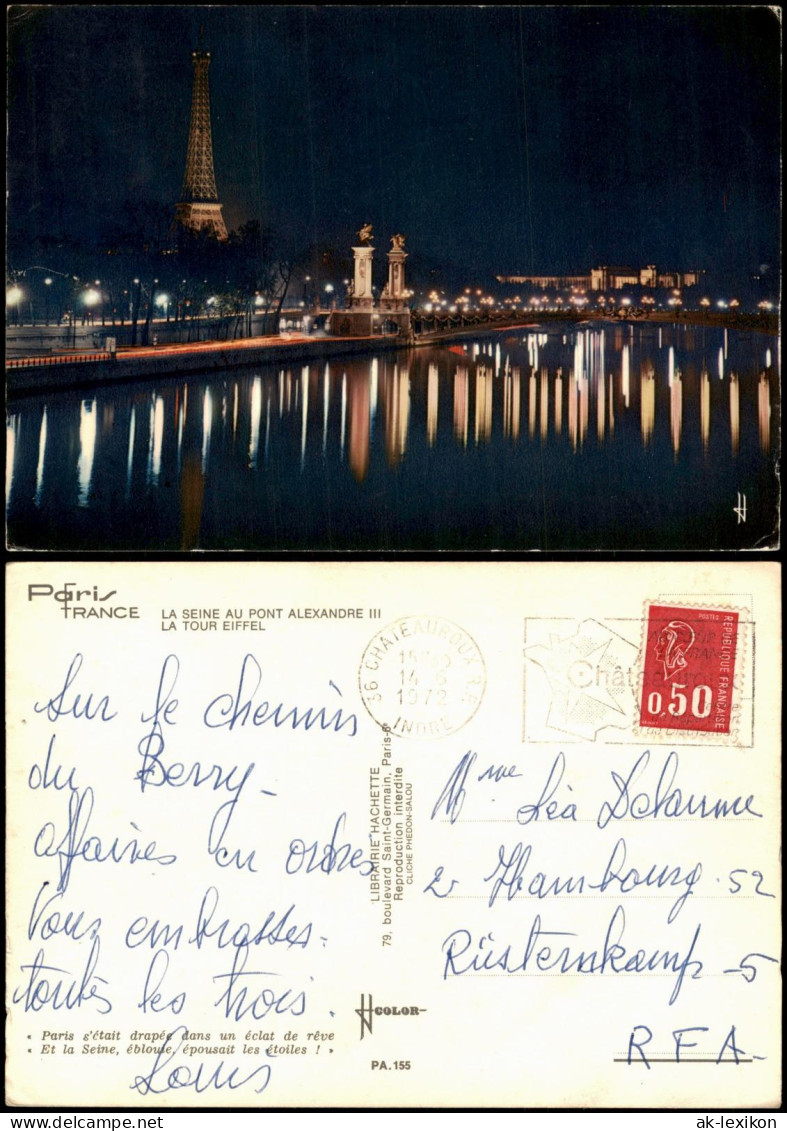 Paris
FRANCE
LA SEINE AU PONT ALEXANDRE III
LA TOUR EIFFEL
36 CHATEAUROUX R.P.
14-6
1972
INDRE
POSTES
RÉPUBLIQUE FRANÇAISE
0,50
Sur le chemin
du Berry -
affaires en ordre
Vous embrasses
toutes les trois.
Louis
LIBRAIRIE HACHETTE
79, boulevard Saint-Germain, Paris-6e
Reproduction interdite
CLICHE PHEDON-SALOU
Mme Léa Delaume
2 Hambourg. 52
Rüsternkamp - 5
R F A -
« Paris s'était drapée dans un éclat de rêve
« Et la Seine, éblouie, épousait les étoiles ! »
COLOR
PA.155
ak-lexikon.de
www.ak-lexikon.de